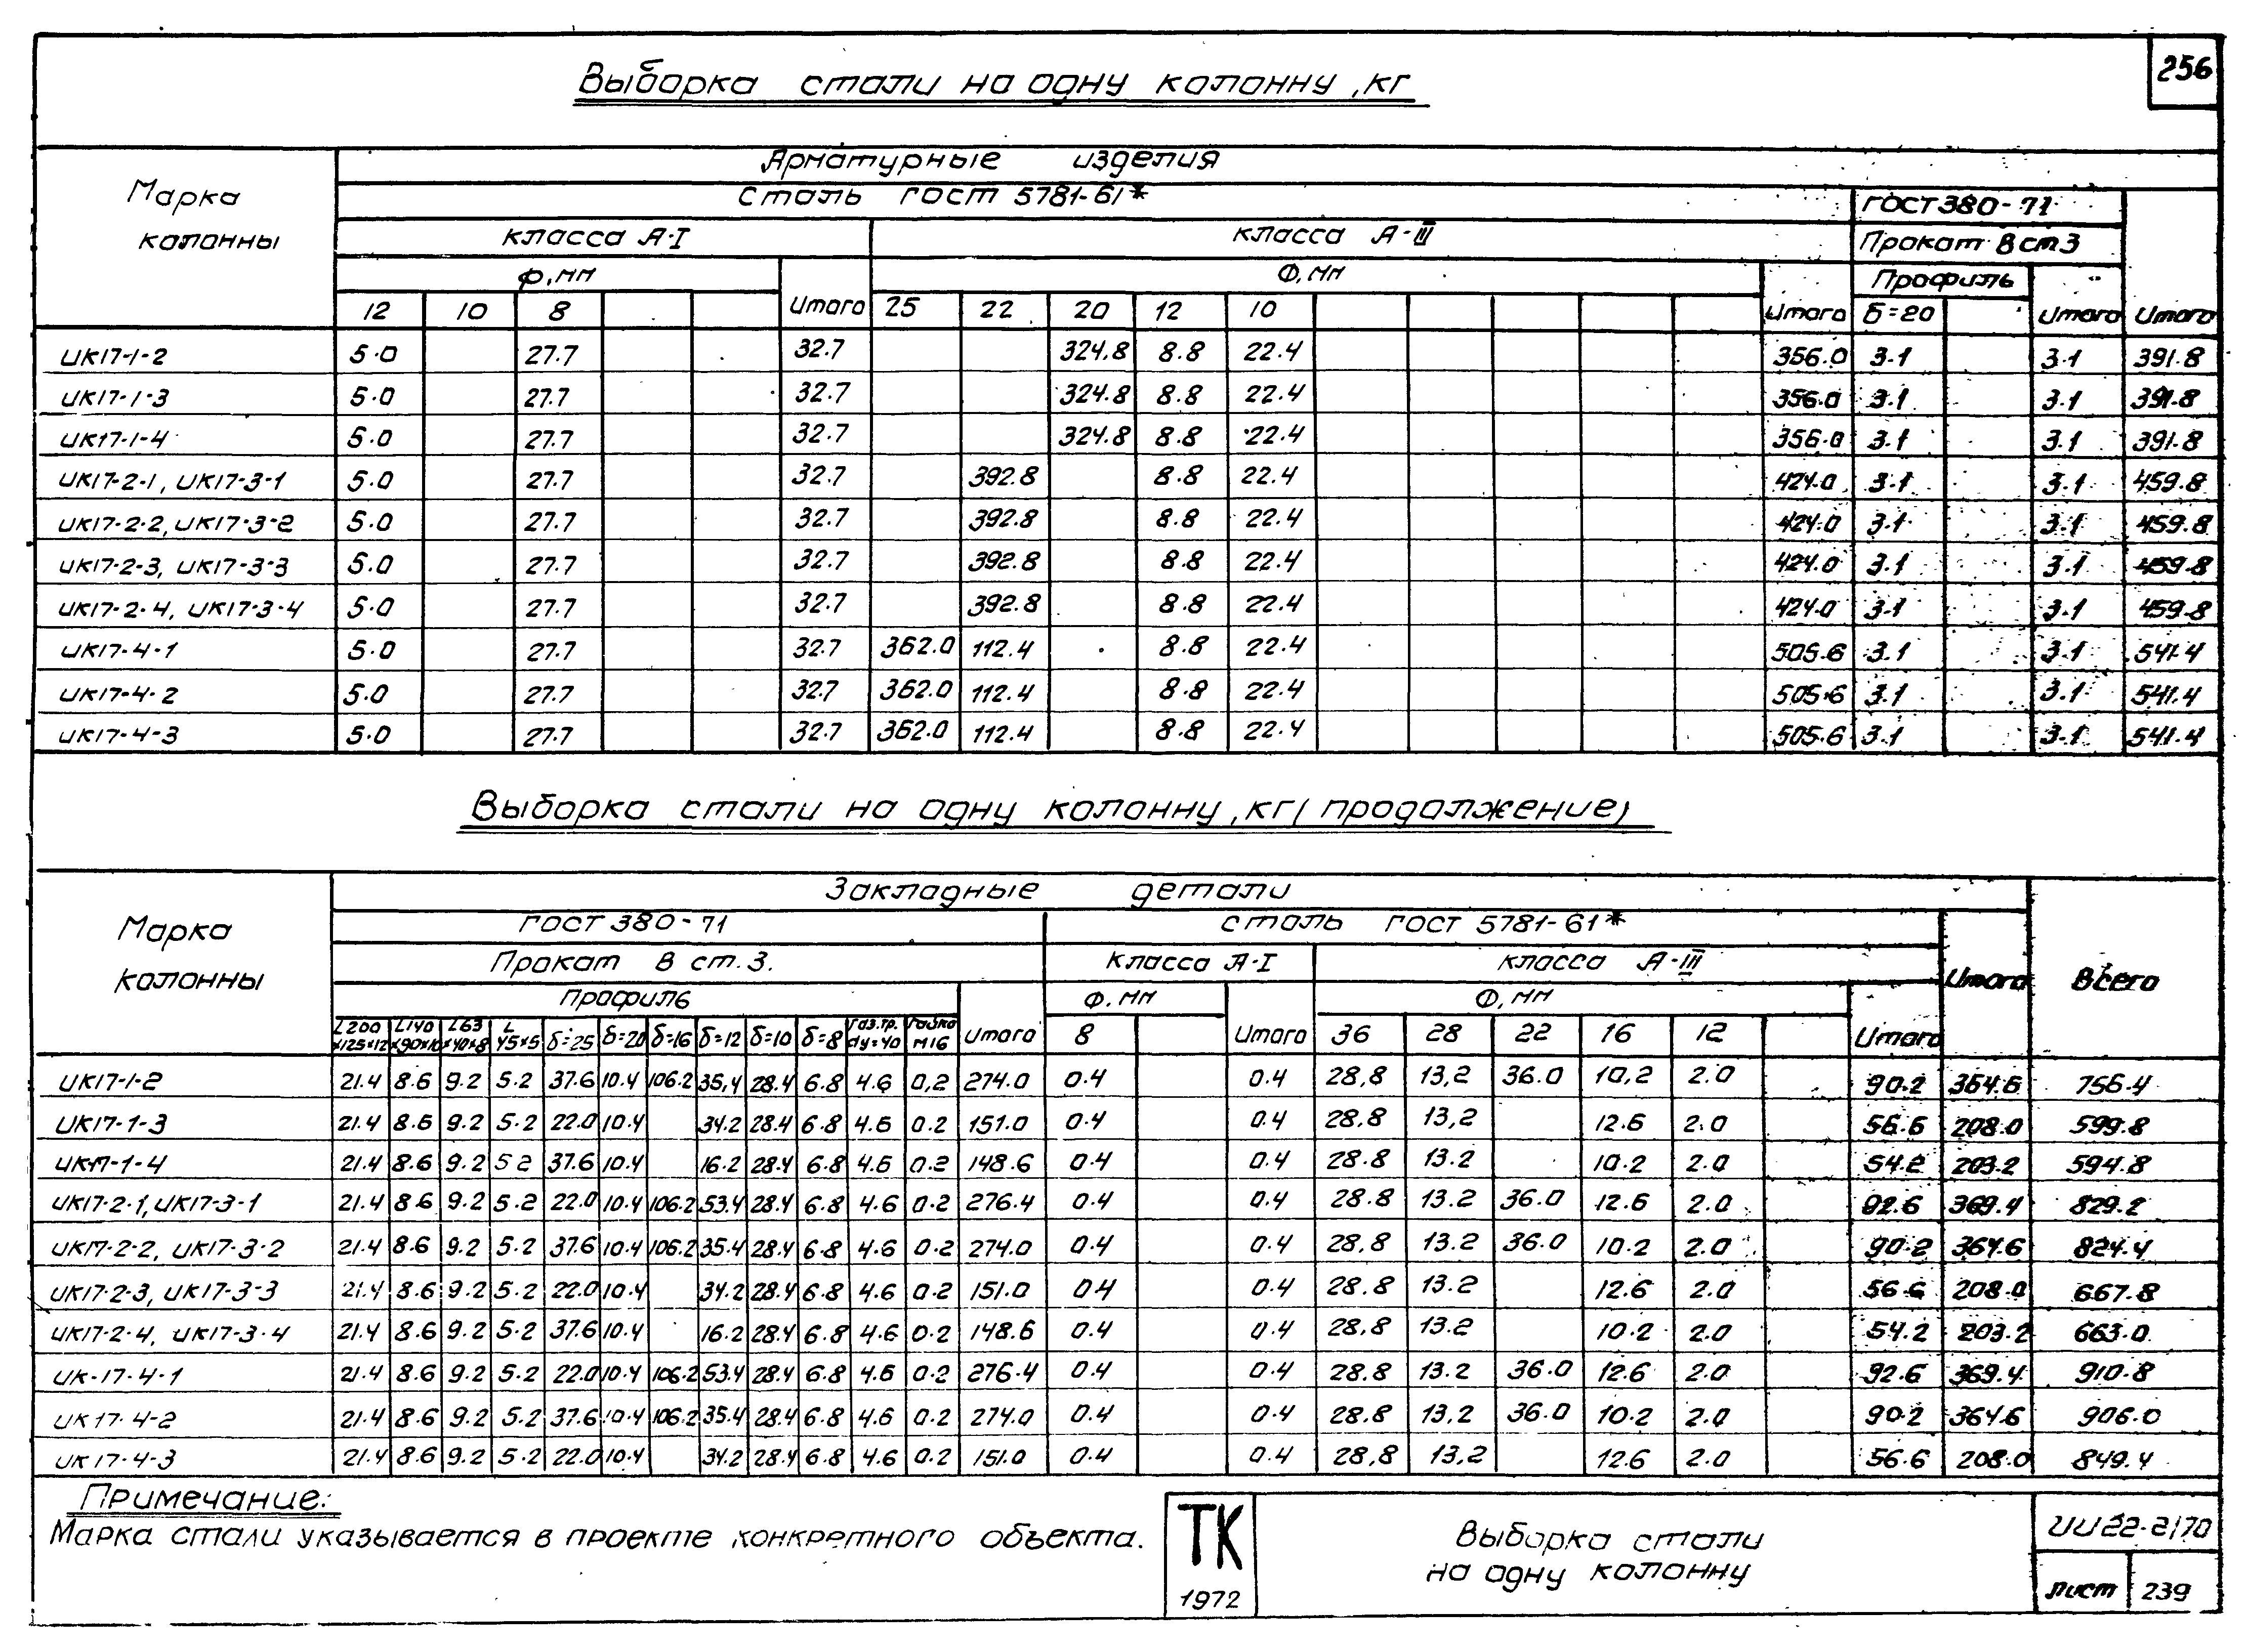 256
Выборка стали на одну колонну, кг
Марка колонны
Арматурные изделия
Сталь ГОСТ 5781-61*
ГОСТ 380-71
класса А-I
класса А-III
Прокат В ст3
Ф, мм
Ф, мм
Профиль
12 10 8 Итого 25 22 20 12 10 Итого δ=20 Итого Итого
ИК17-1-2 5.0 27.7 32.7 324.8 8.8 22.4 356.0 3.1 3.1 391.8
ИК17-1-3 5.0 27.7 32.7 324.8 8.8 22.4 356.0 3.1 3.1 391.8
ИК17-1-4 5.0 27.7 32.7 324.8 8.8 22.4 356.0 3.1 3.1 391.8
ИК17-2-1, ИК17-3-1 5.0 27.7 32.7 392.8 8.8 22.4 424.0 3.1 3.1 459.8
ИК17-2-2, ИК17-3-2 5.0 27.7 32.7 392.8 8.8 22.4 424.0 3.1 3.1 459.8
ИК17-2-3, ИК17-3-3 5.0 27.7 32.7 392.8 8.8 22.4 424.0 3.1 3.1 459.8
ИК17-2-4, ИК17-3-4 5.0 27.7 32.7 392.8 8.8 22.4 424.0 3.1 3.1 459.8
ИК17-4-1 5.0 27.7 32.7 362.0 112.4 8.8 22.4 505.6 3.1 3.1 541.4
ИК17-4-2 5.0 27.7 32.7 362.0 112.4 8.8 22.4 505.6 3.1 3.1 541.4
ИК17-4-3 5.0 27.7 32.7 362.0 112.4 8.8 22.4 505.6 3.1 3.1 541.4
Выборка стали на одну колонну, кг (продолжение)
Марка колонны
Закладные детали
ГОСТ 380-71
сталь ГОСТ 5781-61*
Прокат В ст.3.
Класса А-I
класса А-III
Итого
Всего
Профиль
Ф, мм
Ф, мм
L200×125×12 L140×90×10 L63×40×8 L45×5 δ=25 δ=20 δ=16 δ=12 δ=10 δ=8 Газ.тр.dу=40 Гайка М16 Итого 8 Итого 36 28 22 16 12 Итого
ИК17-1-2 21.4 8.6 9.2 5.2 37.6 10.4 106.2 35,4 28.4 6.8 4.6 0,2 274.0 0.4 0.4 28,8 13,2 36.0 10,2 2.0 90.2 364.6 756.4
ИК17-1-3 21.4 8.6 9.2 5.2 22.0 10.4 34.2 28.4 6.8 4.6 0.2 151.0 0.4 0.4 28,8 13,2 12.6 2.0 56.6 208.0 599.8
ИК17-1-4 21.4 8.6 9.2 5 2 37.6 10.4 16.2 28.4 6.8 4.6 0.2 148.6 0.4 0.4 28.8 13.2 10.2 2.0 54.2 203.2 594.8
ИК17-2-1, ИК17-3-1 21.4 8.6 9.2 5.2 22.0 10.4 106.2 53.4 28.4 6.8 4.6 0.2 276.4 0.4 0.4 28.8 13.2 36.0 12.6 2.0 92.6 369.4 829.2
ИК17-2-2, ИК17-3-2 21.4 8.6 9.2 5.2 37.6 10.4 106.2 35.4 28.4 6.8 4.6 0.2 274.0 0.4 0.4 28,8 13.2 36.0 10.2 2.0 90.2 364.6 824.4
ИК17-2-3, ИК17-3-3 21.4 8.6 9.2 5.2 22.0 10.4 34.2 28.4 6.8 4.6 0.2 151.0 0.4 0.4 28.8 13.2 12.6 2.0 56.6 208.0 667.8
ИК17-2-4, ИК17-3-4 21.4 8.6 9.2 5.2 37.6 10.4 16.2 28.4 6.8 4.6 0.2 148.6 0.4 0.4 28,8 13.2 10.2 2.0 54.2 203.2 663.0
ИК-17-4-1 21.4 8.6 9.2 5.2 22.0 10.4 106.2 53.4 28.4 6.8 4.6 0.2 276.4 0.4 0.4 28.8 13.2 36.0 12.6 2.0 92.6 369.4 910.8
ИК17-4-2 21.4 8.6 9.2 5.2 37.6 10.4 106.2 35.4 28.4 6.8 4.6 0.2 274.0 0.4 0.4 28.8 13,2 36.0 10.2 2.0 90.2 364.6 906.0
ИК17-4-3 21.4 8.6 9.2 5.2 22.0 10.4 34.2 28.4 6.8 4.6 0.2 151.0 0.4 0.4 28,8 13,2 12.6 2.0 56.6 208.0 849.4
Примечание:
Марка стали указывается в проекте конкретного объекта.
ТК
1972
Выборка стали
на одну колонну
ИИ22-2/70
лист 239